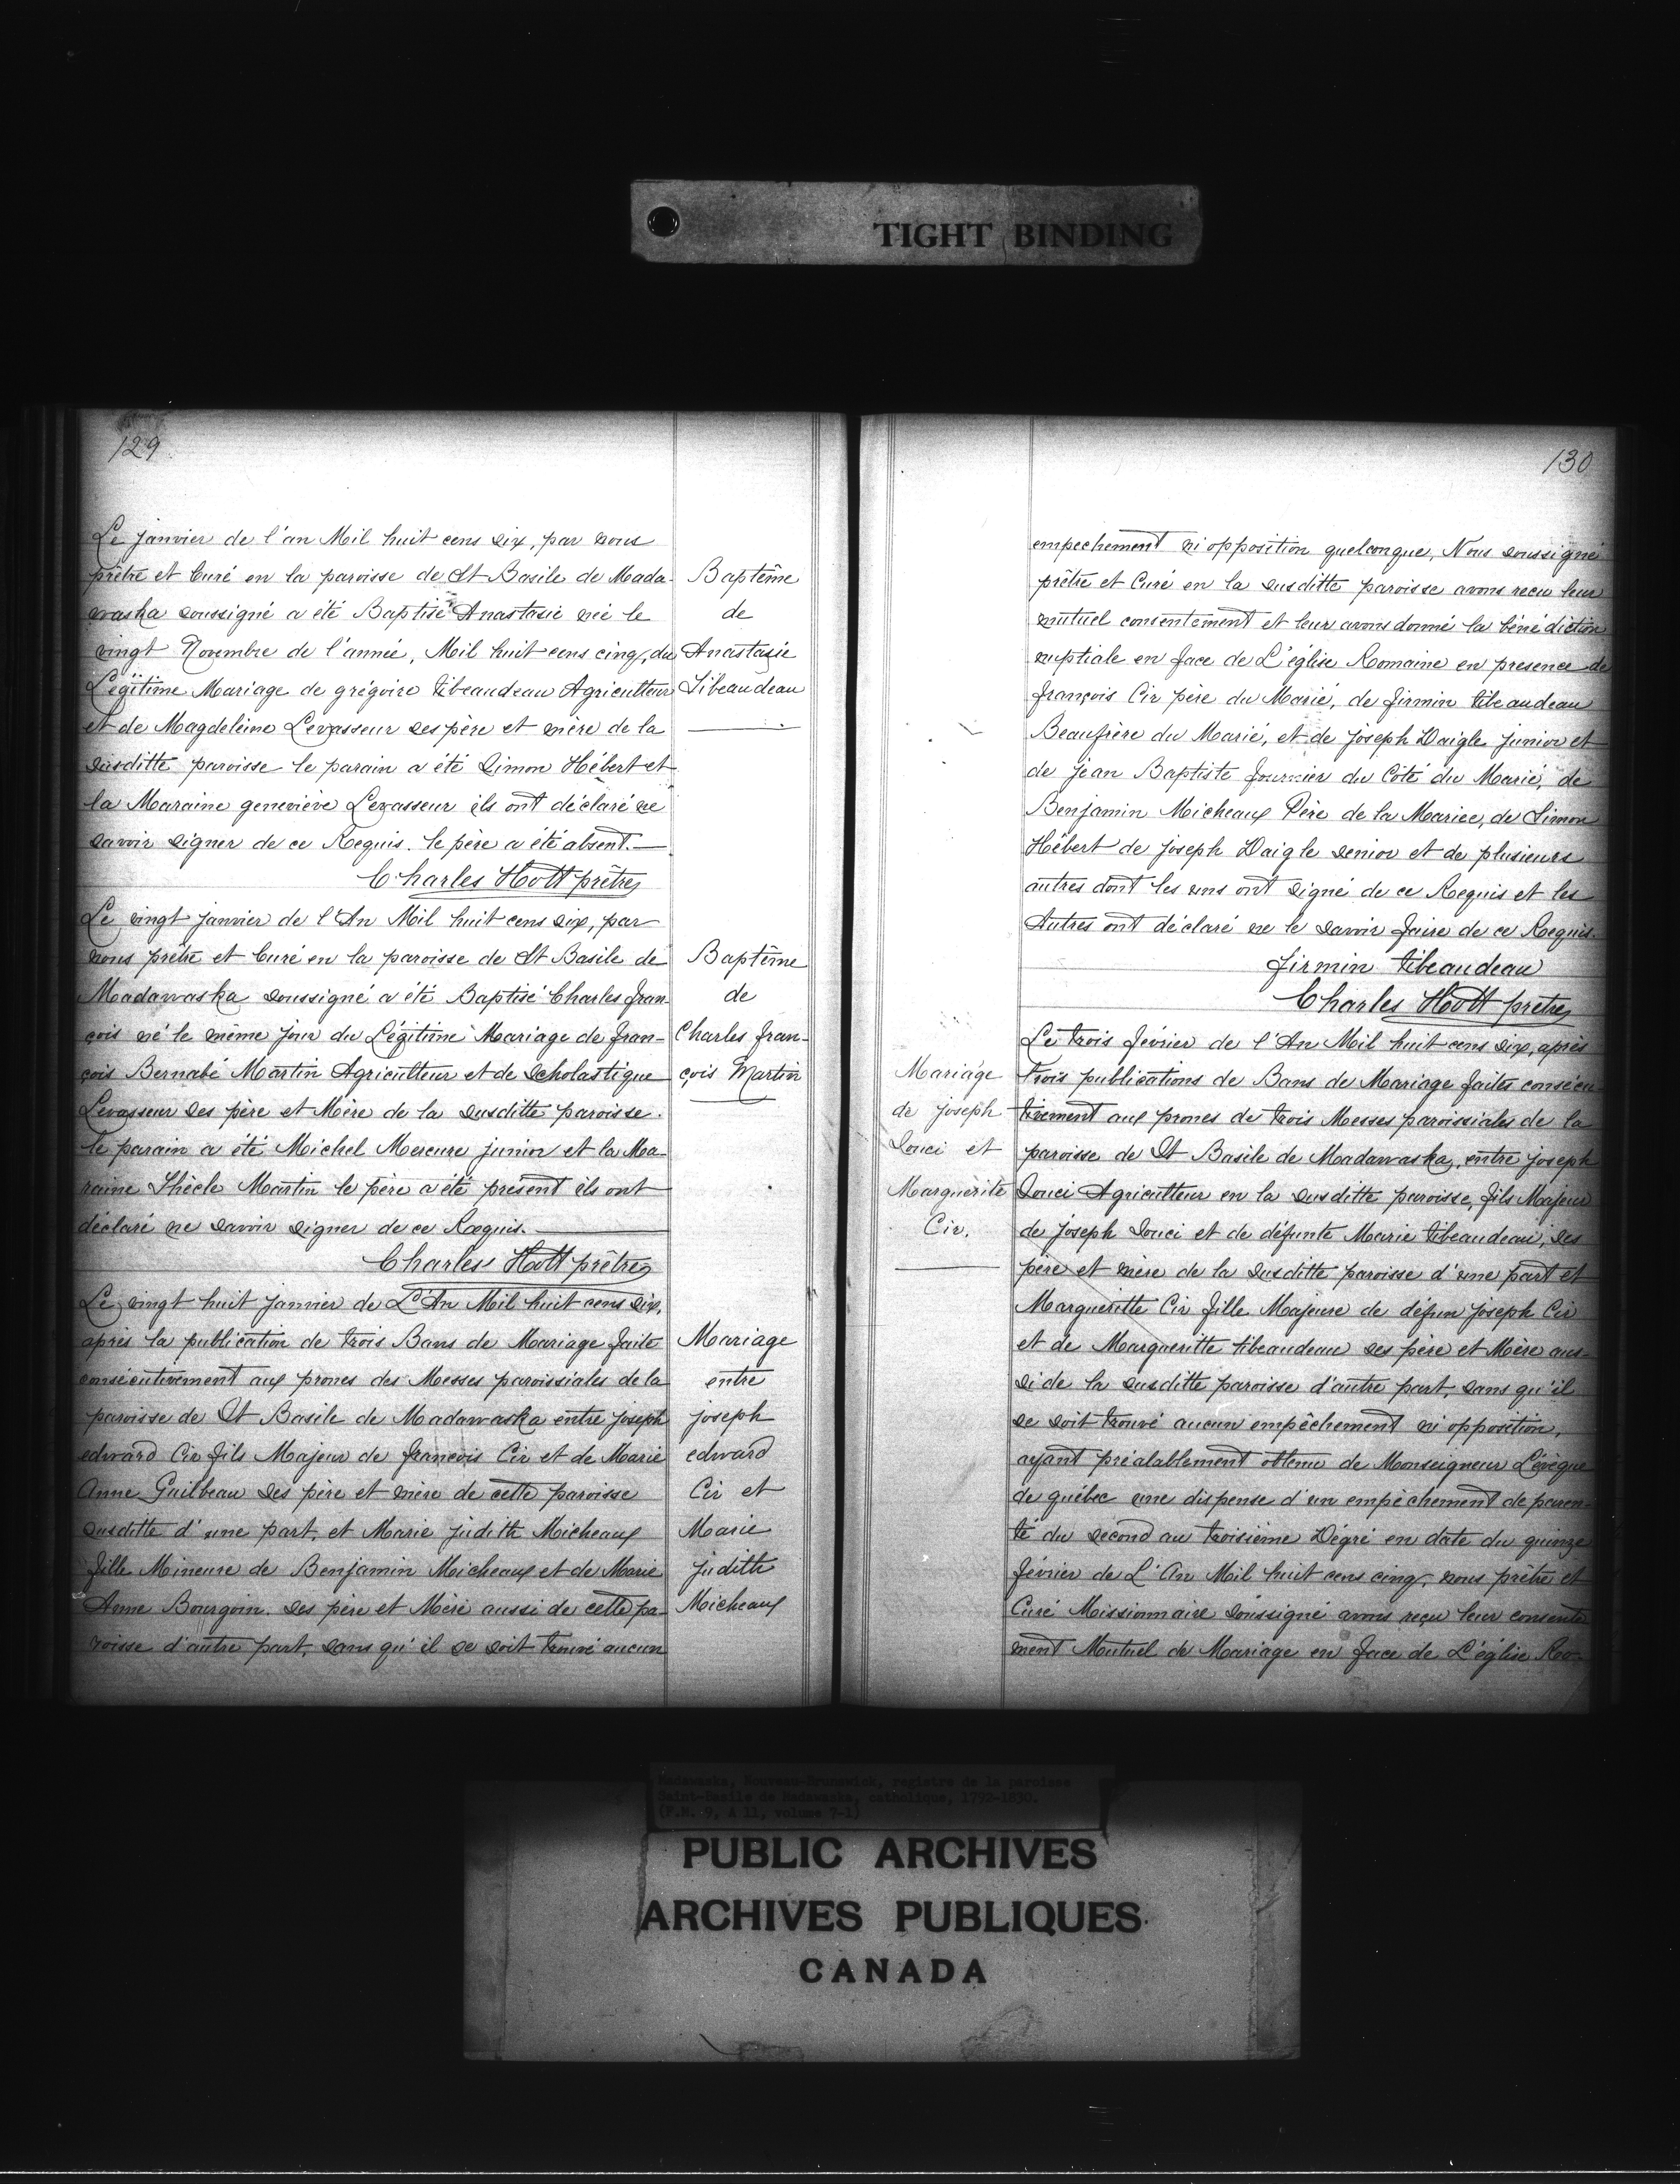 TIGHT BINDING
129
Le janvier de l'an Mil huit cens six, par nous
prêtre et Curé en la paroisse de St Basile de Mada-
waska soussigné a été Baptisé Anastasie née le
vingt Novembre de l'année, Mil huit cens cinq, du
Légitime Mariage de grégoire tibeaudeau Agriculteur
et de Magdeleine Levasseur ses père et mère de la
susditte paroisse le parain a été Simon Hébert et
la Maraine geneviève Levasseur ils ont déclaré ne
savoir signer de ce Requis. le père a été absent.
Charles Hott prêtre
Baptême
de
Anastasie
Tibeaudeau
Le vingt janvier de l'An Mil huit cens six, par
nous prêtre et Curé en la paroisse de St Basile de
Madawaska soussigné a été Baptisé Charles fran-
çois né le même jour du Légitime Mariage de fran-
çois Bernabé Martin Agriculteur et de Scholastique
Levasseur ses père et Mère de la susditte paroisse.
le parain a été Michel Mercure junior et la Ma-
raine Thècle Martin le père a été present ils ont
déclaré ne savoir signer de ce Requis.
Charles Hott prêtre
Baptême
de
Charles fran-
çois Martin
Le vingt huit janvier de L'An Mil huit cens six,
après la publication de trois Bans de Mariage faite
consécutivement aux prones des Messes paroissiales de la
paroisse de St Basile de Madawaska entre joseph
edward Cir fils Majeur de françois Cir et de Marie
Anne Guilbeau ses père et mère de cette paroisse
susditte d'une part, et Marie judith Micheaux
fille Mineure de Benjamin Micheaux et de Marie
Anne Bourgoin. ses père et Mère aussi de cette pa-
roisse d'autre part, sans qu'il se soit trouvé aucun
Mariage
entre
joseph
edward
Cir et
Marie
judith
Micheaux
130
empechement ni opposition quelconque, Nous soussigné
prêtre et Curé en la susditte paroisse avons recu leur
mutuel consentement et leur avons donné la bénédiction
nuptiale en face de L'église Romaine en presence de
françois Cir père du Marié, de firmin tibeaudeau
Beaufrère du Marié, et de joseph Daigle junior et
de jean Baptiste fournier du Côté du Marié, de
Benjamin Micheaux Père de la Mariee, de Simon
Hébert de joseph Daigle senior et de plusieurs
autres dont les uns ont signé de ce Requis et les
Autres ont déclaré ne le savoir faire de ce Requis.
firmin tibeaudeau
Charles Hott prêtre
Mariage
de joseph
Souci et
Marguerite
Cir.
Le trois février de l'An Mil huit cens six, après
trois publications de Bans de Mariage faites consécu-
tivement aux prones de trois Messes paroissiales de la
paroisse de St Basile de Madawaska, entre joseph
Souci Agriculteur en la susditte paroisse, fils Majeur
de joseph Souci et de défunte Marie tibeaudeau, ses
père et mère de la susditte paroisse d'une part et
Margueritte Cir fille Majeure de défun joseph Cir
et de Margueritte tibeaudeau ses père et Mère aus-
si de la susditte paroisse d'autre part, sans qu'il
se soit trouvé aucun empêchement ni opposition,
ayant préalablement obtenu de Monseigneur L'évêque
de québec une dispense d'un empêchement de paren-
té du second au troisième Dégré en date du quinze
février de L'An Mil huit cens cinq, nous prêtre et
Curé Missionnaire soussigné avons reçu leur consente
ment Mutuel de Mariage en face de L'église Ro-
Madawaska, Nouveau-Brunswick, registre de la paroisse
Saint-Basile de Madawaska, catholique, 1792-1830.
(F.M. 9, A 11, volume 7-1)
PUBLIC ARCHIVES
ARCHIVES PUBLIQUES
CANADA